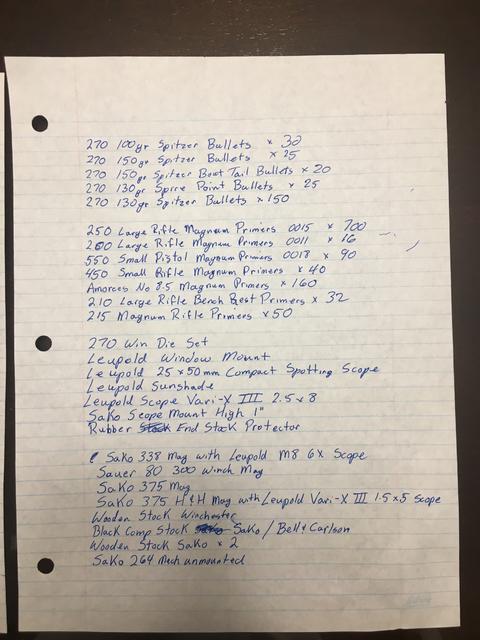 270 100gr Spitzer Bullets x 32
270 150gr Spitzer Bullets x 25
270 150gr Spitzer Boat Tail Bullets x 20
270 130gr Spire Point Bullets x 25
270 130gr Spitzer Bullets x 150
250 Large Rifle Magnum Primers 0015 x 700
200 Large Rifle Magnum Primers 0011 x 16
550 Small Pistol Magnum Primers 0018 x 90
450 Small Rifle Magnum Primers x 40
Amorces No 8.5 Magnum Primers x 160
210 Large Rifle Bench Rest Primers x 32
215 Magnum Rifle Primers x 50
270 Win Die Set
Leupold Window Mount
Leupold 25x50mm Compact Spotting Scope
Leupold Sunshade
Leupold Scope Vari-X III 2.5x8
Sako Scope Mount High 1"
Rubber End Stock Protector
Sako 338 Mag with Leupold M8 6X Scope
Sauer 80 300 Winch Mag
Sako 375 Mag
Sako 375 H&H Mag with Leupold Vari-X III 1.5x5 Scope
Wooden Stock Winchester
Black Comp Stock Sako / Bell & Carlson
Wooden Stock Sako x 2
Sako 264 unmounted